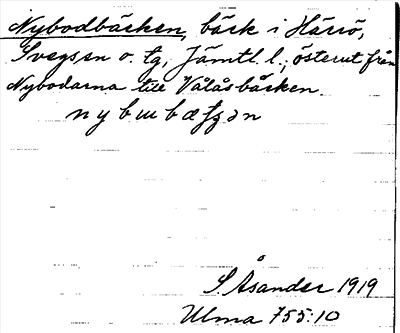 Nybodbäcken, bäck i Härjö,
Svegssn o. tg, Jämtl. l.; österut från
Nybodarna till Vålåsbäcken.
S. Åsander 1919
Ulma 755:10